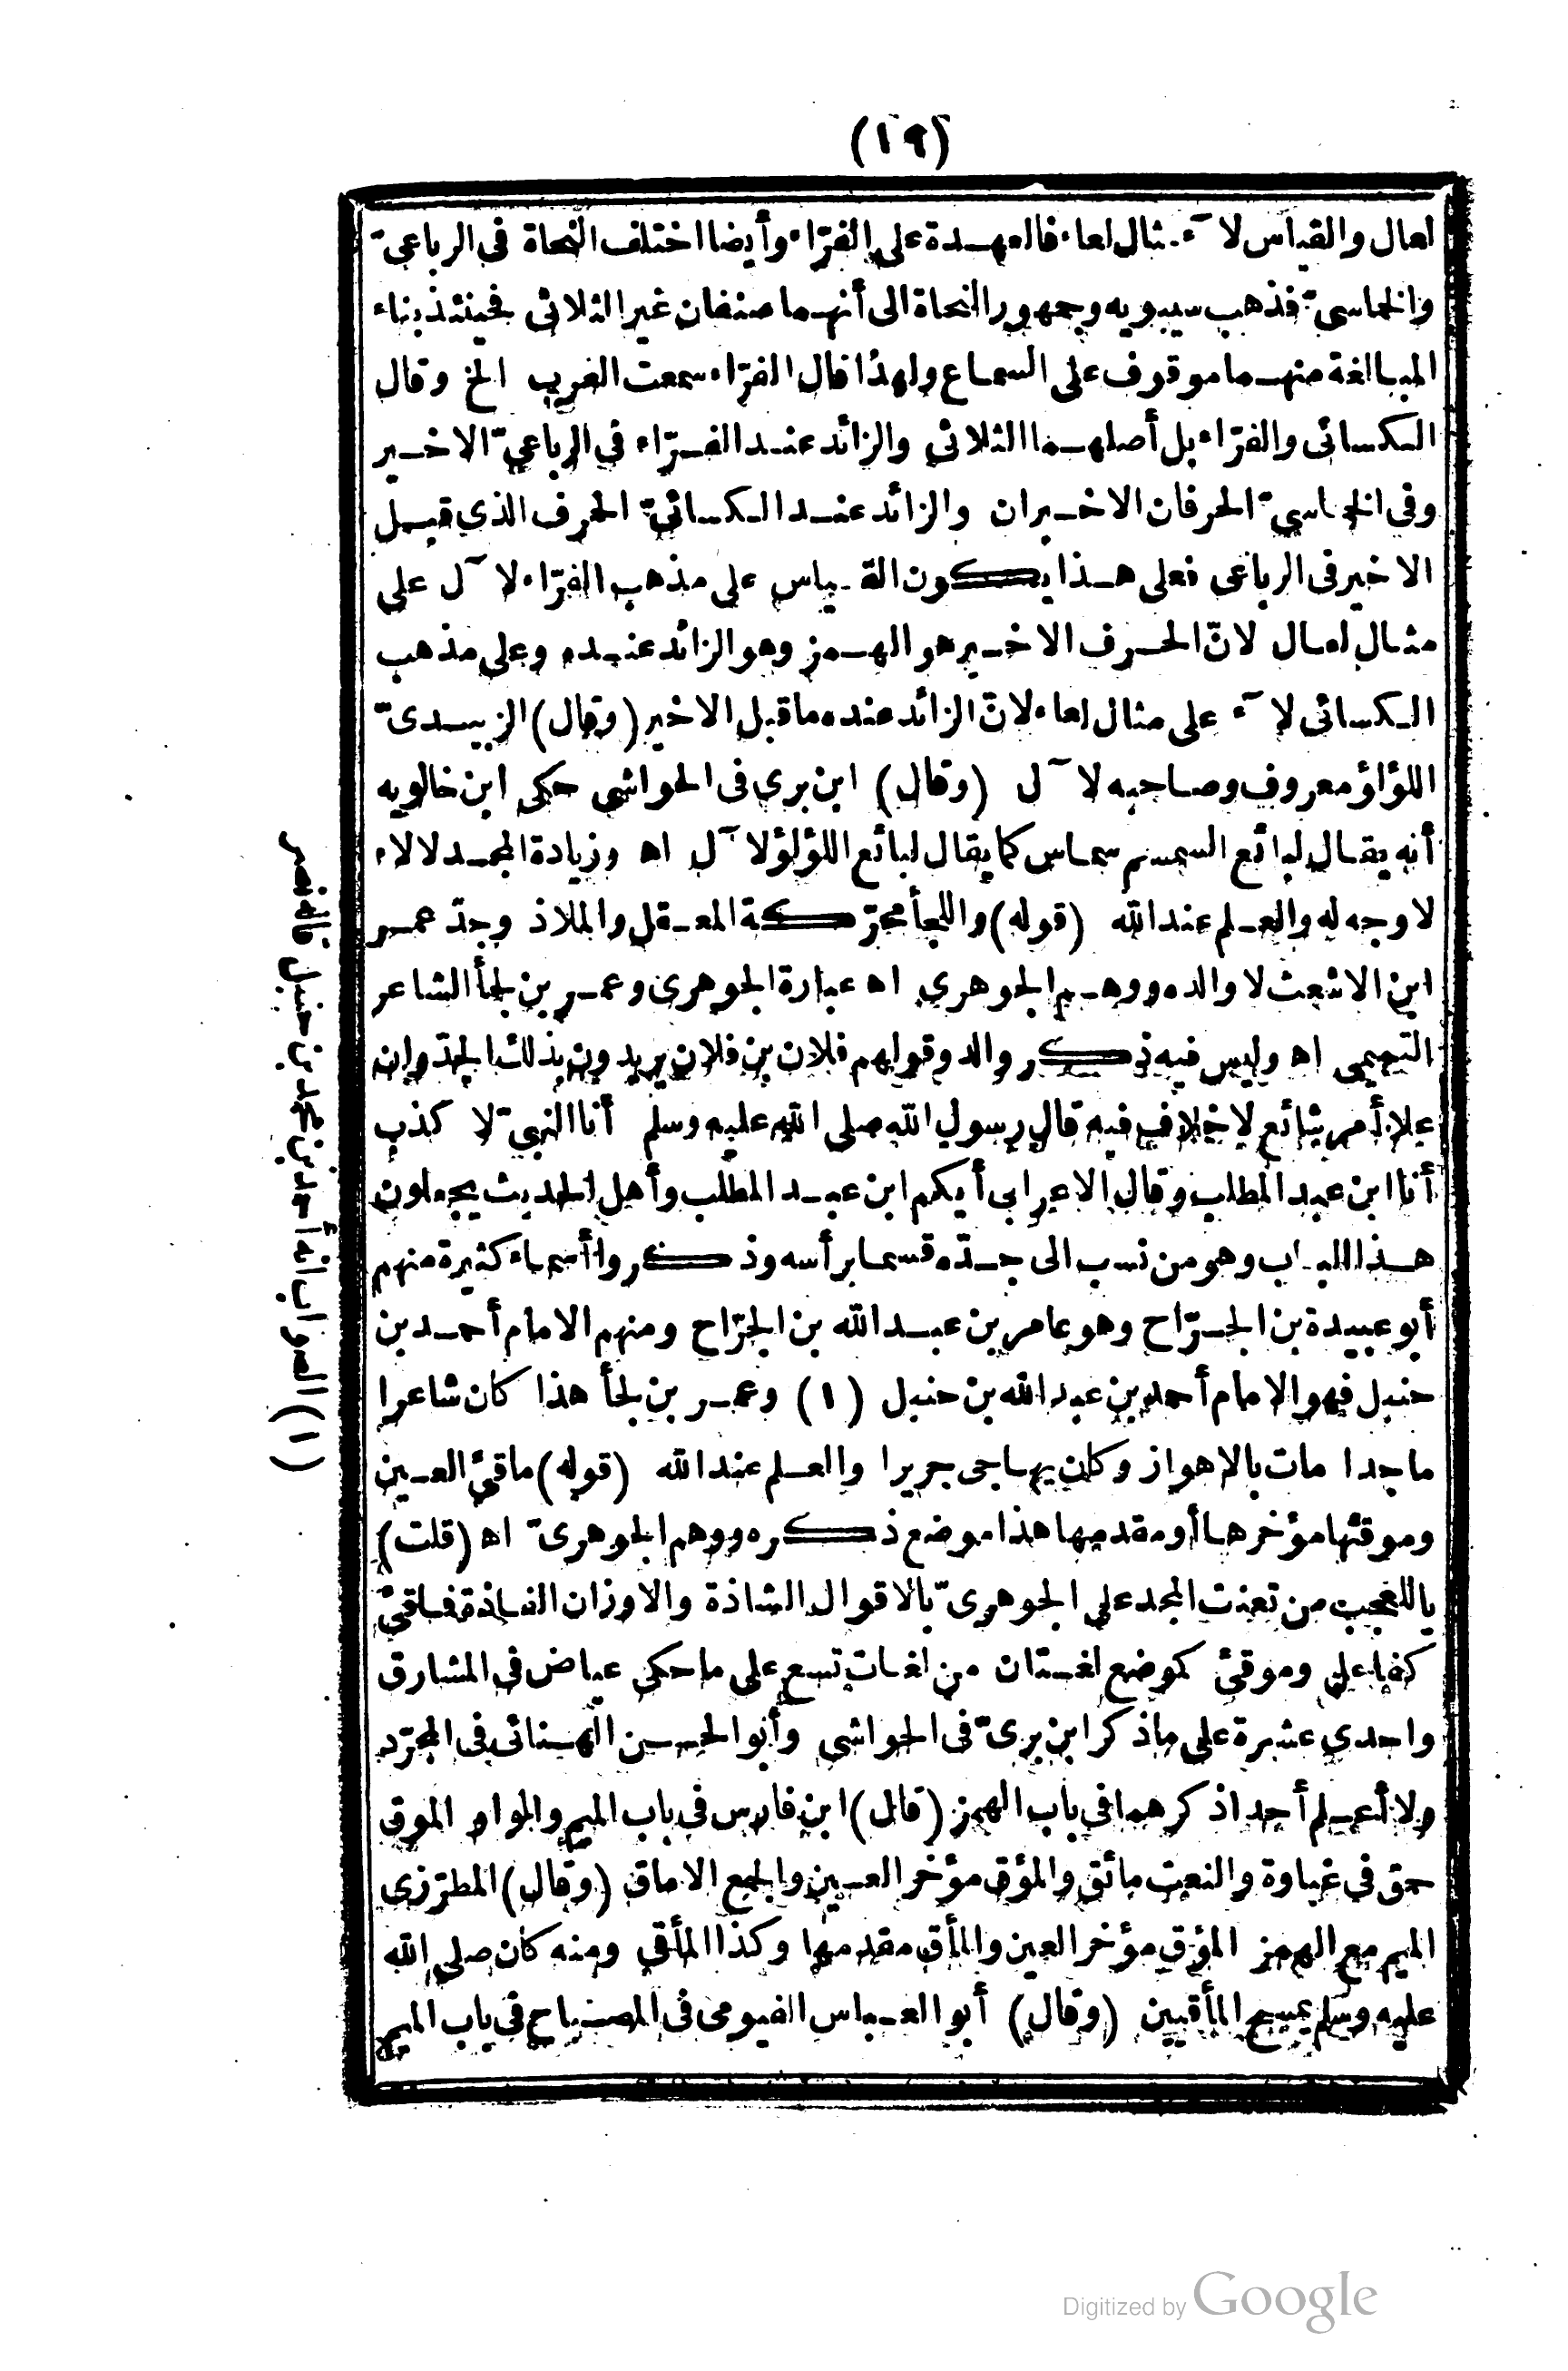 (١٩)
لعال والقياس لا ٓء مثال لعاء فالعهدة على الفرّاء وأيضا اختلف النحاة فى الرباعىّ
والخماسىّ فذهب سيبويه وجمهور النحاة الى أنهما صنفان غير الثلاثى فحينئذ بناء
المبالغة منهما موقوف على السماع ولهذا قال الفرّاء سمعت العرب الخ وقال
الكسائى والفرّاء بل أصلهما الثلاثى والزائد عند الفرّاء فى الرباعىّ الاخير
وفى الخماسىّ الحرفان الاخيران والزائد عند الكسائىّ الحرف الذى قبل
الاخير فى الرباعى فعلى هذا يكون القياس على مذهب الفرّاء لا ٓل على
مثال لعال لانّ الحرف الاخير هو الهمز وهو الزائد عنده وعلى مذهب
الكسائى لا ٓء على مثال لعاء لانّ الزائد عنده ماقبل الاخير (وقال) الزبيدىّ
اللؤلؤ معروف وصاحبه لا ٓل (وقال) ابن برى فى الحواشى حكى ابن خالويه
أنه يقال لبائع السمسم سماس كما يقال لبائع اللؤلؤ لا ٓل اه وزيادة المجد لالاء
لا وجه له والعلم عند الله (قوله) واللجأ محرّكة المعقل والملاذ وجدّ عمر
ابن الاشعث لا والده ووهم الجوهرى اه عبارة الجوهرى وعمر بن لجأ الشاعر
التميمى اه وليس فيه ذكر والد وقولهم فلان بن فلان يريدون بذلك الجدّ وان
علا أمر شائع لا خلاف فيه قال رسول الله صلى الله عليه وسلم أنا النبىّ لا كذب
أنا ابن عبد المطلب وقال الاعرابى أيكم ابن عبد المطلب وأهل الحديث يجعلون
هذا الباب وهو من نسب الى جدّه قسما برأسه وذكروا أسماء كثيرة منهم
أبو عبيدة بن الجرّاح وهو عامر بن عبد الله بن الجرّاح ومنهم الامام أحمد بن
حنبل فهو الامام أحمد بن عبد الله بن حنبل (١) وعمر بن لجأ هذا كان شاعرا
ماجدا مات بالاهواز وكان يهاجى جريرا والعلم عند الله (قوله) ماقئ العين
وموقئها مؤخرها أو مقدمها هذا موضع ذكره ووهم الجوهرىّ اه (قلت)
ياللعجب من تعنت المجد على الجوهرىّ بالاقوال الشاذة والاوزان الفاذة فماقئ
كفاعل وموقئ كموضع لغتان من لغات تسع على ما حكى عياض فى المشارق
واحدى عشرة على ماذكر ابن برىّ فى الحواشى وأبو الحسن الهنائى فى المجرّد
ولا أعلم أحدا ذكرهما فى باب الهمز (قال) ابن فارس فى باب الميم والواو الموق
حمق فى غباوة والنعت مائق والمؤق مؤخر العين والجمع الاماق (وقال) المطرّزى
الميم مع الهمز المؤق مؤخر العين والمأق مقدمها وكذا المأقى ومنه كان صلى الله
عليه وسلم يمسح المأقيين (وقال) أبو العباس الفيومى فى المصباح فى باب الميم
(١) الصواب انه أحمد بن محمد بن حنبل قاله نصر
Digitized by Google